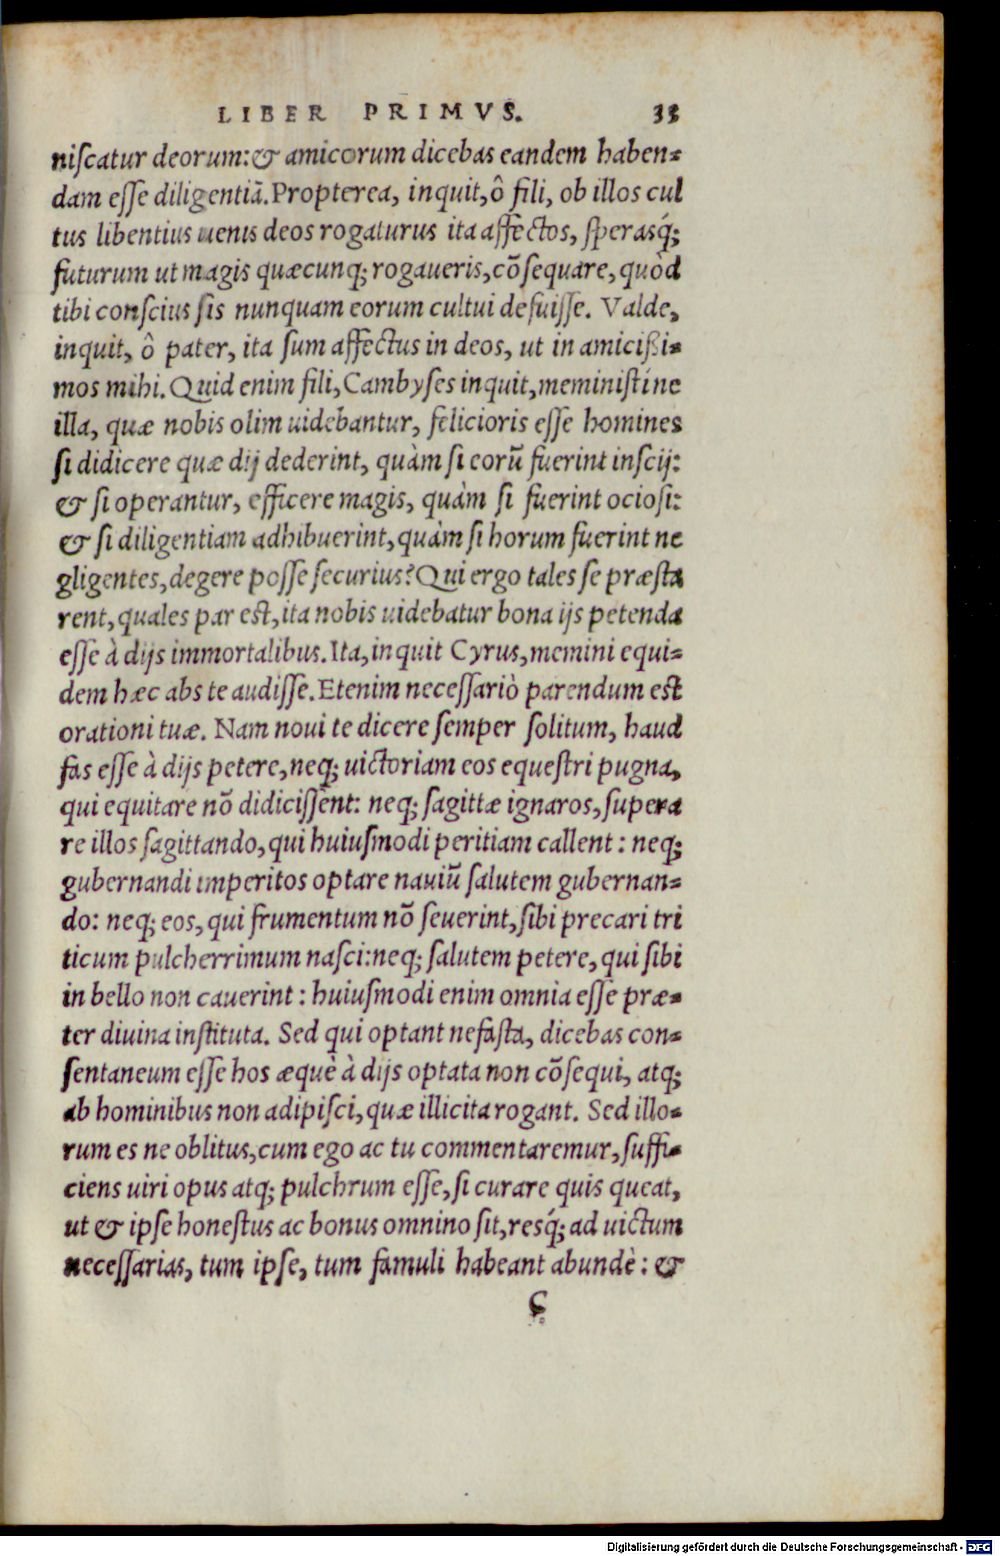 LIBER PRIMVS. 33
niſcatur deorum: & amicorum dicebas eandem haben-
dam eſſe diligentiã. Propterea, inquit, ô fili, ob illos cul
tus libentius uenis deos rogaturus ita affectos, ſperasq́;
futurum ut magis quæcunq; rogaueris, cõſequare, quòd
tibi conſcius ſis nunquam eorum cultui defuiſſe. Valde,
inquit, ô pater, ita ſum affectus in deos, ut in amicißi-
mos mihi. Quid enim fili, Cambyſes inquit, meministíne
illa, quæ nobis olim uidebantur, felicioris eſſe homines
ſi didicere quæ dij dederint, quàm ſi eorũ fuerint inſcij:
& ſi operantur, efficere magis, quàm ſi fuerint ocioſi:
& ſi diligentiam adhibuerint, quàm ſi horum fuerint ne
gligentes, degere poſſe ſecurius? Qui ergo tales ſe præſta
rent, quales par est, ita nobis uidebatur bona ijs petenda
eſſe à dijs immortalibus. Ita, inquit Cyrus, memini equi-
dem hæc abs te audiſſe. Etenim neceſſariò parendum est
orationi tuæ. Nam noui te dicere ſemper ſolitum, haud
fas eſſe à dijs petere, neq; uictoriam eos equeſtri pugna,
qui equitare nõ didiciſſent: neq; ſagittæ ignaros, ſupera
re illos ſagittando, qui huiuſmodi peritiam callent: neq;
gubernandi imperitos optare nauiũ ſalutem gubernan-
do: neq; eos, qui frumentum nõ ſeuerint, ſibi precari tri
ticum pulcherrimum naſci: neq; ſalutem petere, qui ſibi
in bello non cauerint: huiuſmodi enim omnia eſſe præ-
ter diuina inſtituta. Sed qui optant nefaſta, dicebas con-
ſentaneum eſſe hos æquè à dijs optata non cõſequi, atq;
ab hominibus non adipiſci, quæ illicita rogant. Sed illo-
rum es ne oblitus, cum ego ac tu commentaremur, ſuffi-
ciens uiri opus atq; pulchrum eſſe, ſi curare quis queat,
ut & ipſe honeſtus ac bonus omnino ſit, resq́; ad uictum
neceſſarias, tum ipſe, tum famuli habeant abundè: &
Digitalisierung gefördert durch die Deutsche Forschungsgemeinschaft - DFG